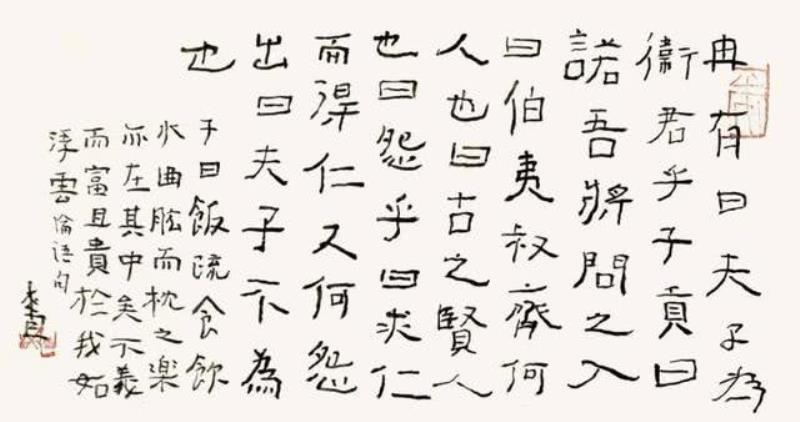 冉有曰夫子为
衛君乎子貢曰
諾吾將問之入
曰伯夷叔齊何
人也曰古之賢人
也曰怨乎曰求仁
而得仁又何怨
出曰夫子不為
也
子曰飯疏食飲
水曲肱而枕之樂
亦在其中矣不義
而富且貴於我如
浮雲論语句